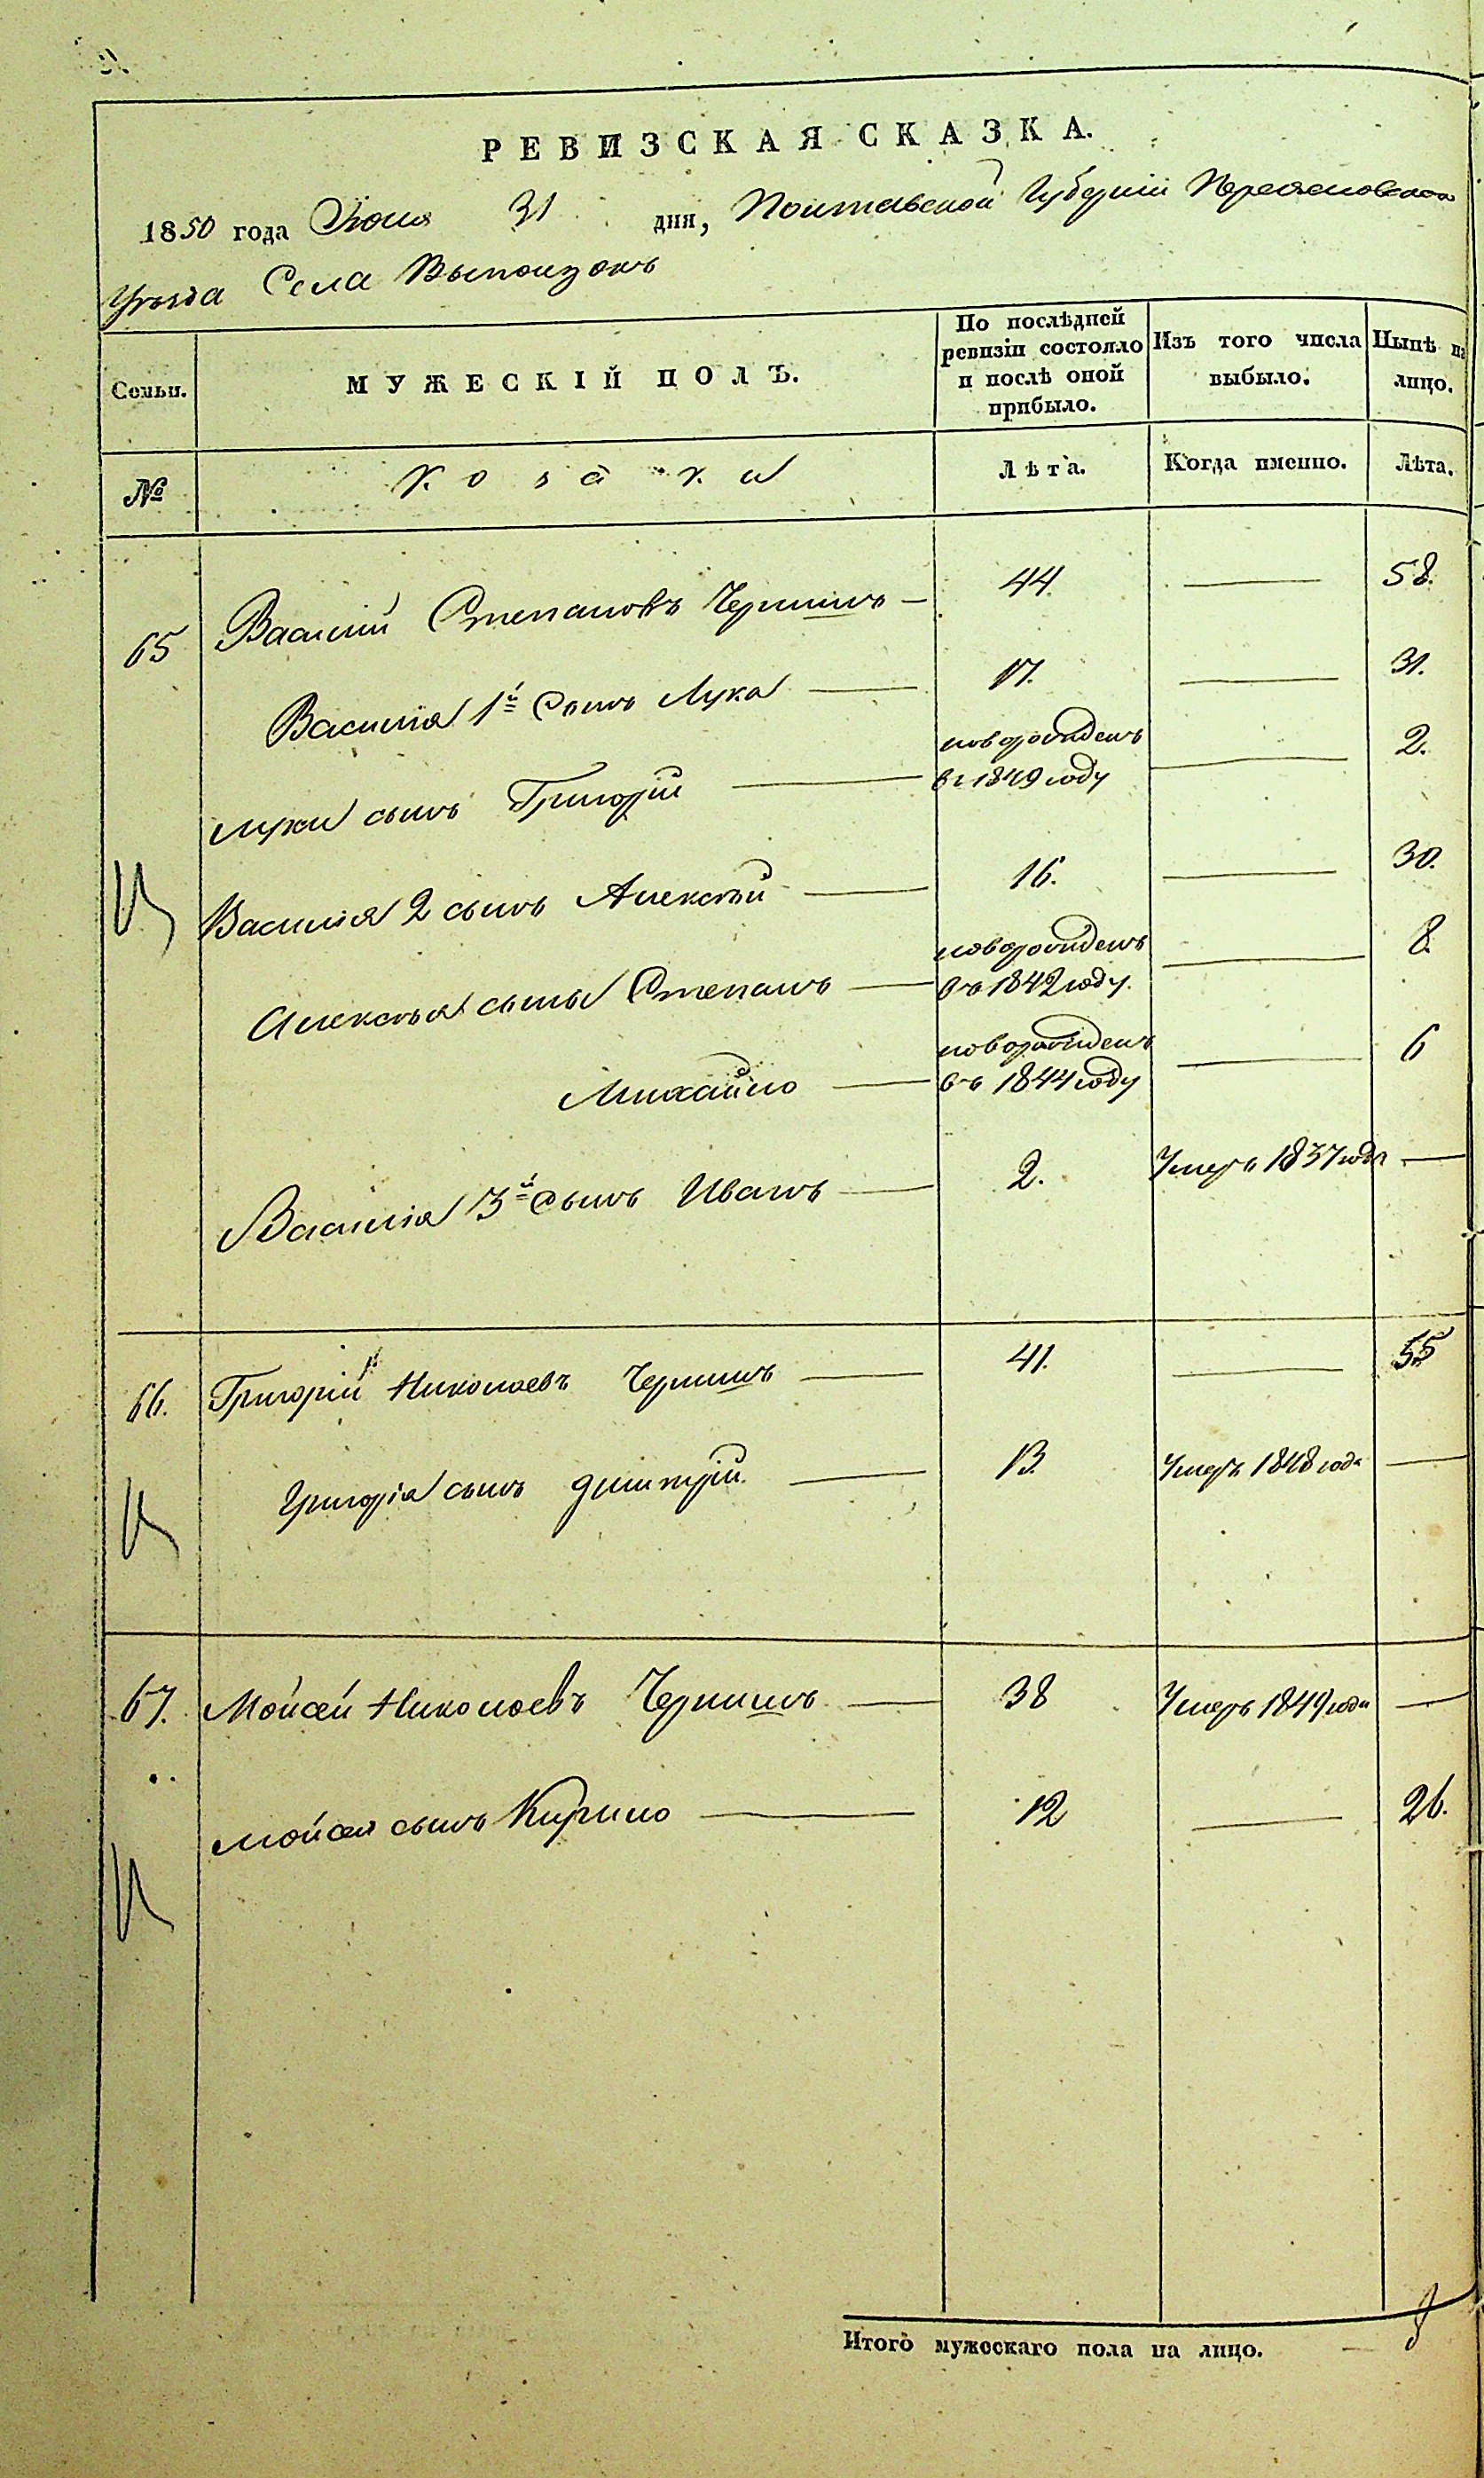 РЕВИЗСКАЯ СКАЗКА.
1850 года Июня 31 дня, Полтавской Губерніи Переясловского
Уѣзда Села Выползокъ
Семьи.
МУЖЕСКІЙ ПОЛЪ.
По послѣдней ревизіи состояло и послѣ оной прибыло.
Изъ того числа выбыло.
Нынѣ на лицо.
№
Козаки
Лѣта.
Когда именно.
Лѣта.
65 Василій Степановъ Чернишъ — 44 — 58.
Василія 1й Сынъ Лука — 17. — 31.
Луки сынъ Григорій — новорожденъ в 1849 году — 2.
Василія 2 сынъ Алексѣй — 16. — 30.
Алексѣя сыны Степанъ — новорожденъ въ 1842 году. — 8.
Михайло — новорожденъ въ 1844 году — 6
Василія 3й Сынъ Иванъ — 2. Умеръ 1837 года —
66. Григорій Николаевъ Чернишъ — 41. — 55
Григорія сынъ Дмитрій — 13. Умеръ 1848 года —
67. Мойсей Николаевъ Чернишъ — 38 Умеръ 1849 года —
Мойсея сынъ Кирило — 12 — 26.
Итого мужескаго пола на лицо. — 8